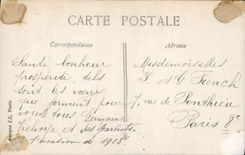 CARTE POSTALE
Correspondance
Adresse
Santé bonheur
prospérité tels
sont les vœux
que forment pour
vous tous Germaine
et ses parents
occasion de 1918
Mesdemoiselles
J. & G. French
7, rue de Ponthieu
Paris 8e